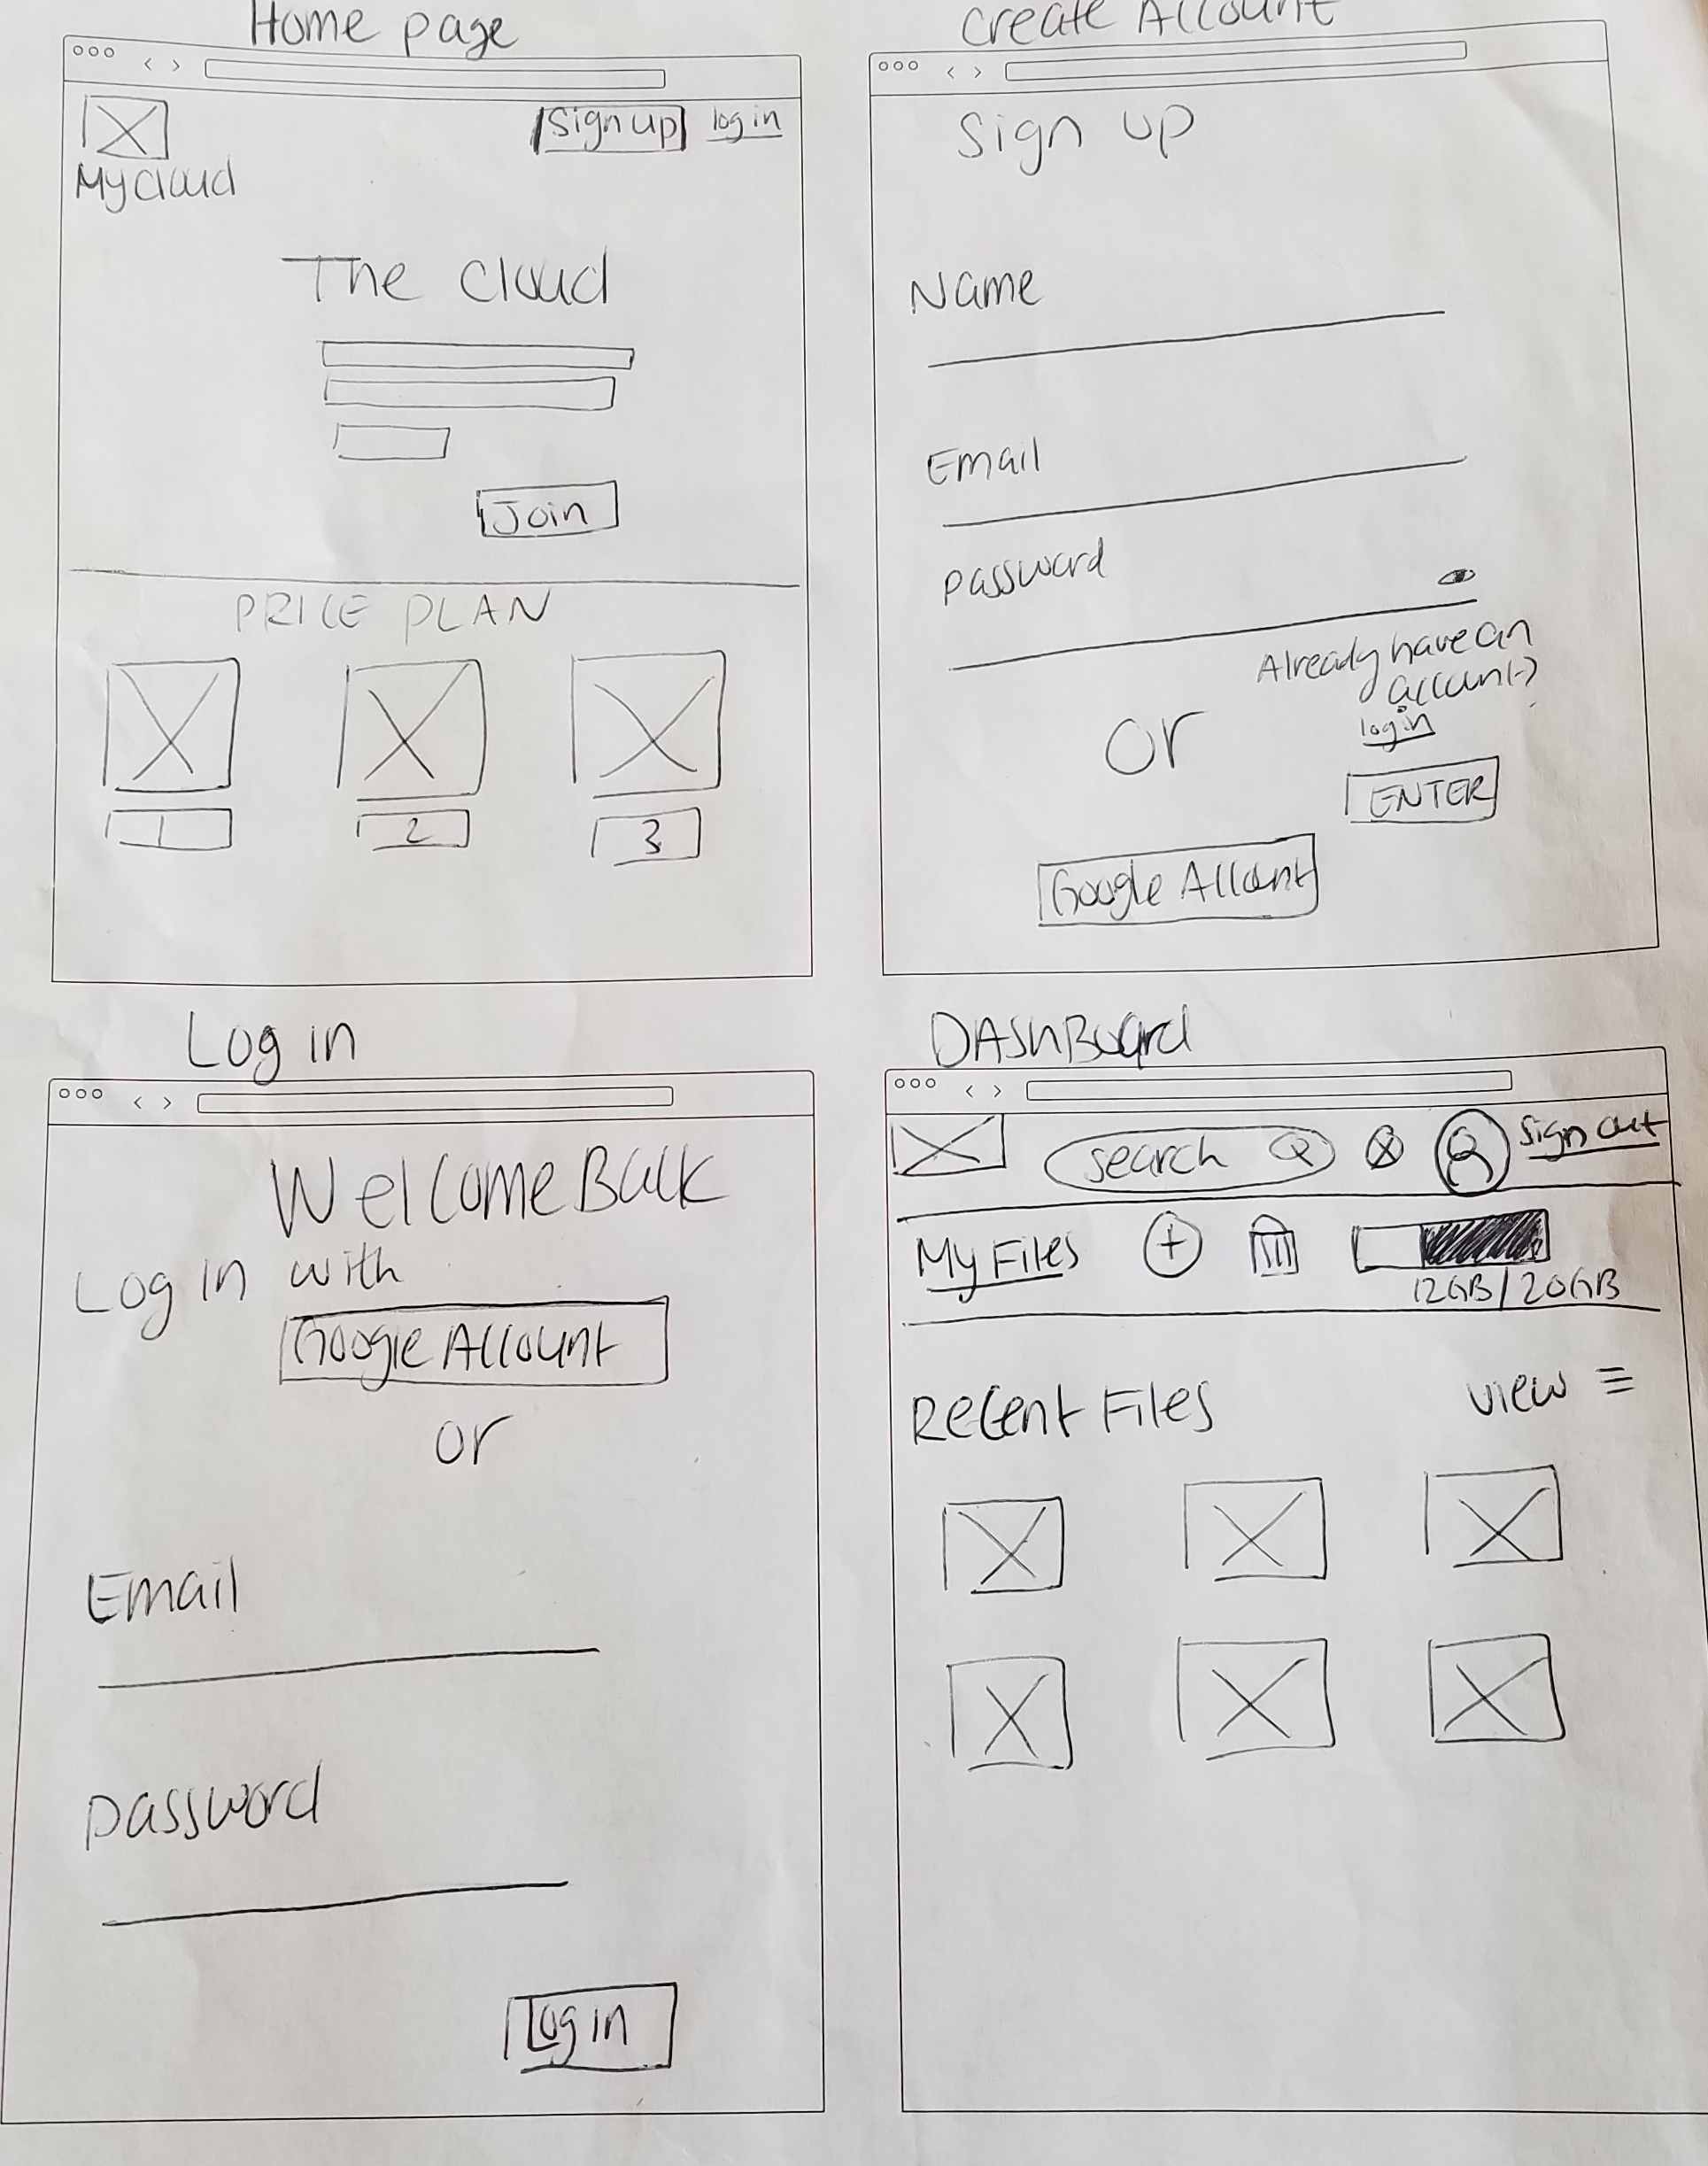 Home page
Sign up log in
My Cloud
The Cloud
Join
PRICE PLAN
1 2 3
Create Account
Sign up
Name
Email
password
Already have an
account?
login
or
ENTER
Google Account
Log in
Welcome Back
Log in with
Google Account
or
Email
password
Log in
DASHBoard
search Sign out
My Files
12GB/20GB
Recent Files view